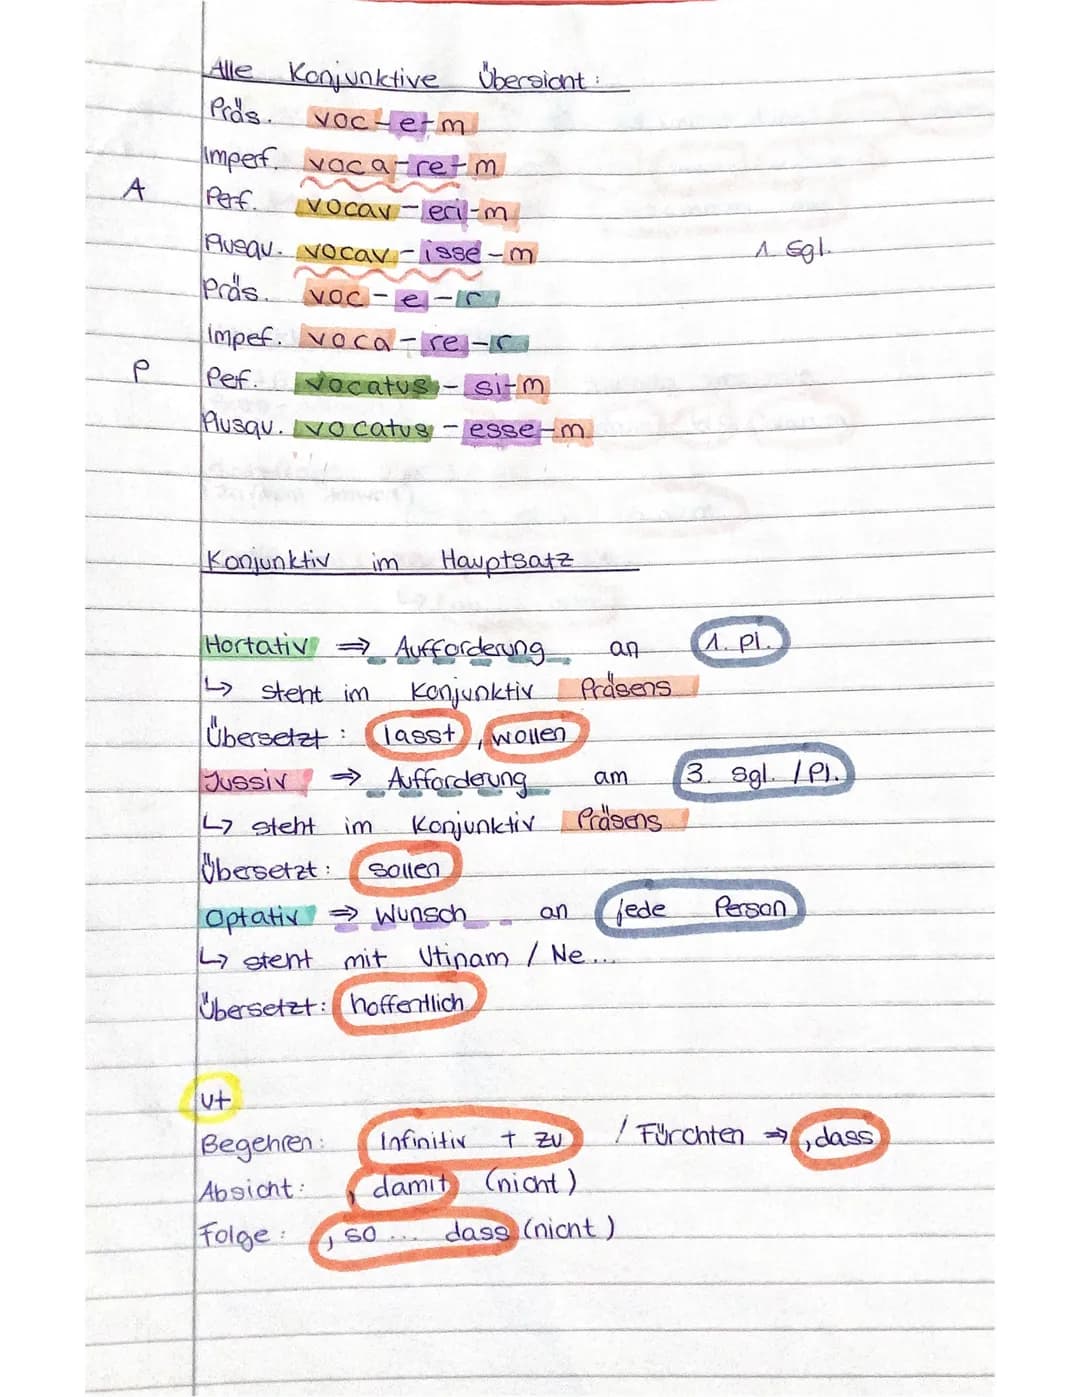 Alle Konjunktive Übersicht:
Präs. voc-e-m
Imperf. voca-re-m
A
Perf. vocav-eri-m
Plusqu. vocav-isse-m
1. Sgl.
Präs. voc-e-r
Impef. voca-re-r
P
Perf. vocatus-si-m
Plusqu. vocatus-esse-m
Konjunktiv im Hauptsatz
Hortativ ⇒ Aufforderung an 1. Pl.
↳ steht im Konjunktiv Präsens
Übersetzt: lasst, wollen
Jussiv ⇒ Aufforderung am 3. Sgl. / Pl.
↳ steht im Konjunktiv Präsens
Übersetzt: sollen
Optativ ⇒ Wunsch an jede Person
↳ steht mit Utinam / Ne...
Übersetzt: hoffentlich
ut
Begehren: Infinitiv + zu / Fürchten ⇒ , dass
Absicht: , damit (nicht)
Folge: , so ... dass (nicht)